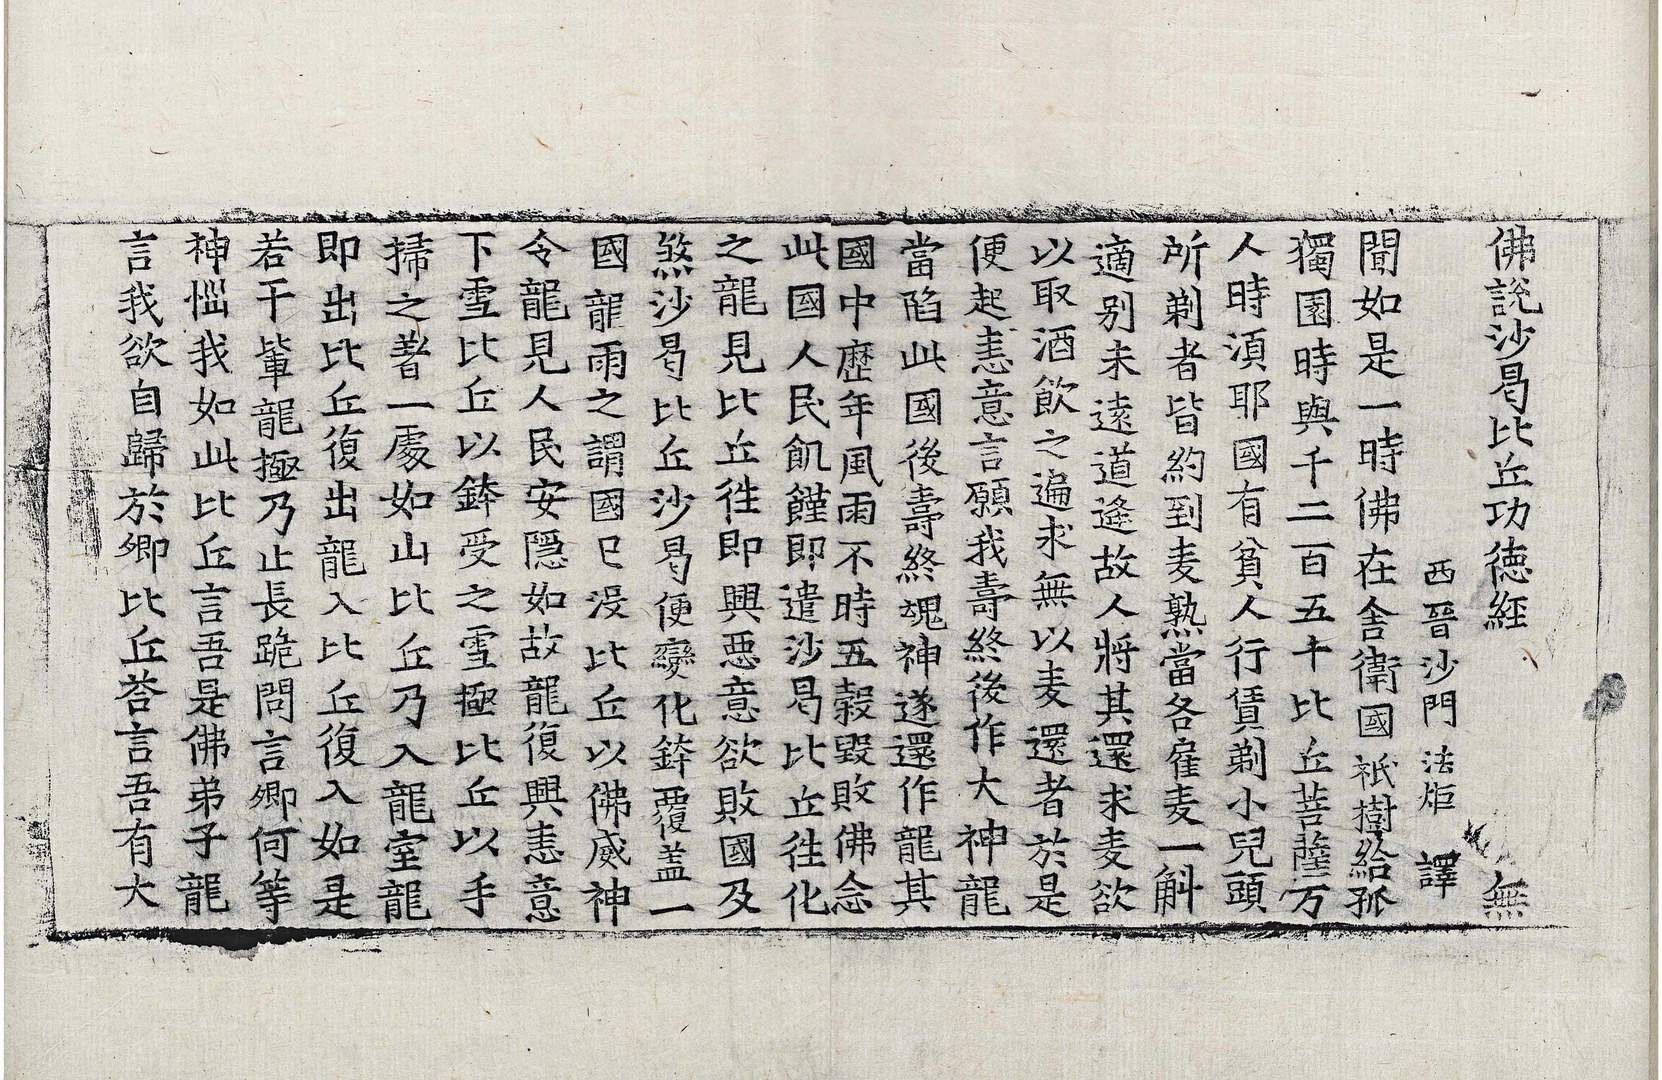 佛說沙曷比丘功德經 無
西晉沙門法炬 譯
聞如是一時佛在舍衛國祇樹給孤
獨園時與千二百五十比丘菩薩万
人時湏耶國有貧人行賃剃小兒頭
所剃者皆約到麦熟當各雇麦一斛
適別未遠道逢故人將其還求麦欲
以取酒飲之遍求無以麦還者於是
便起恚意言願我壽終後作大神龍
當陷此國後壽終魂神遂還作龍其
國中歷年風雨不時五穀毀敗佛念
此國人民飢饉即遣沙曷比丘往化
之龍見比丘徃即興惡意欲敗國及
煞沙曷比丘沙曷便變化鉢覆盖一
國龍雨之謂國已没比丘以佛威神
令龍見人民安隱如故龍復興恚意
下雪比丘以鉢受之雪極比丘以手
掃之著一處如山比丘乃入龍室龍
即出比丘復出龍入比丘復入如是
若干軰龍極乃止長跪問言卿何等
神惱我如此比丘言吾是佛弟子龍
言我欲自歸於卿比丘荅言吾有大